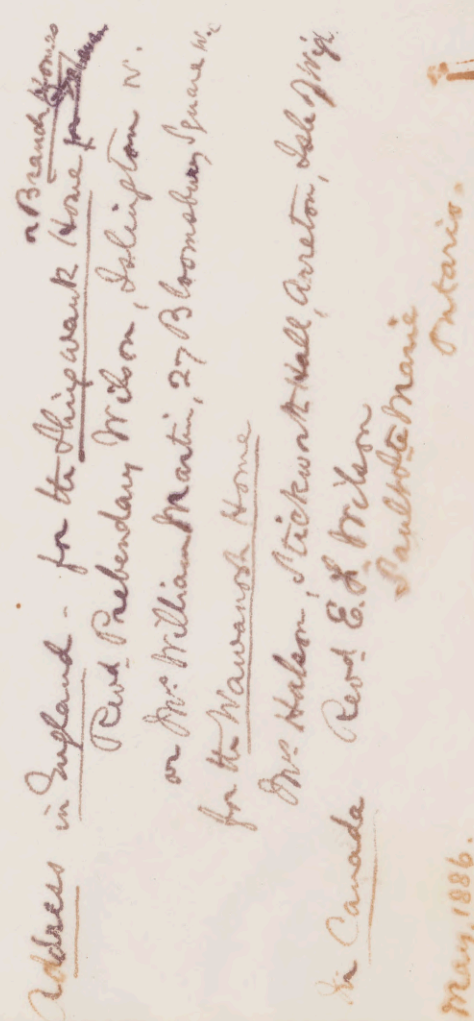 Address in England - for the Shingwauk Home or Branch Homes for
Revd. Prebendary Wilson, Islington N.
or Mr. William Martin, 27 Bloomsbury Square W.C.
for the Wawanosh Home
Mrs. Halson, Stickworth Hall, Arreton, Isle of Wigt
In Canada Revd. E. F. Wilson
Sault Ste Marie
Ontario.
May, 1886.